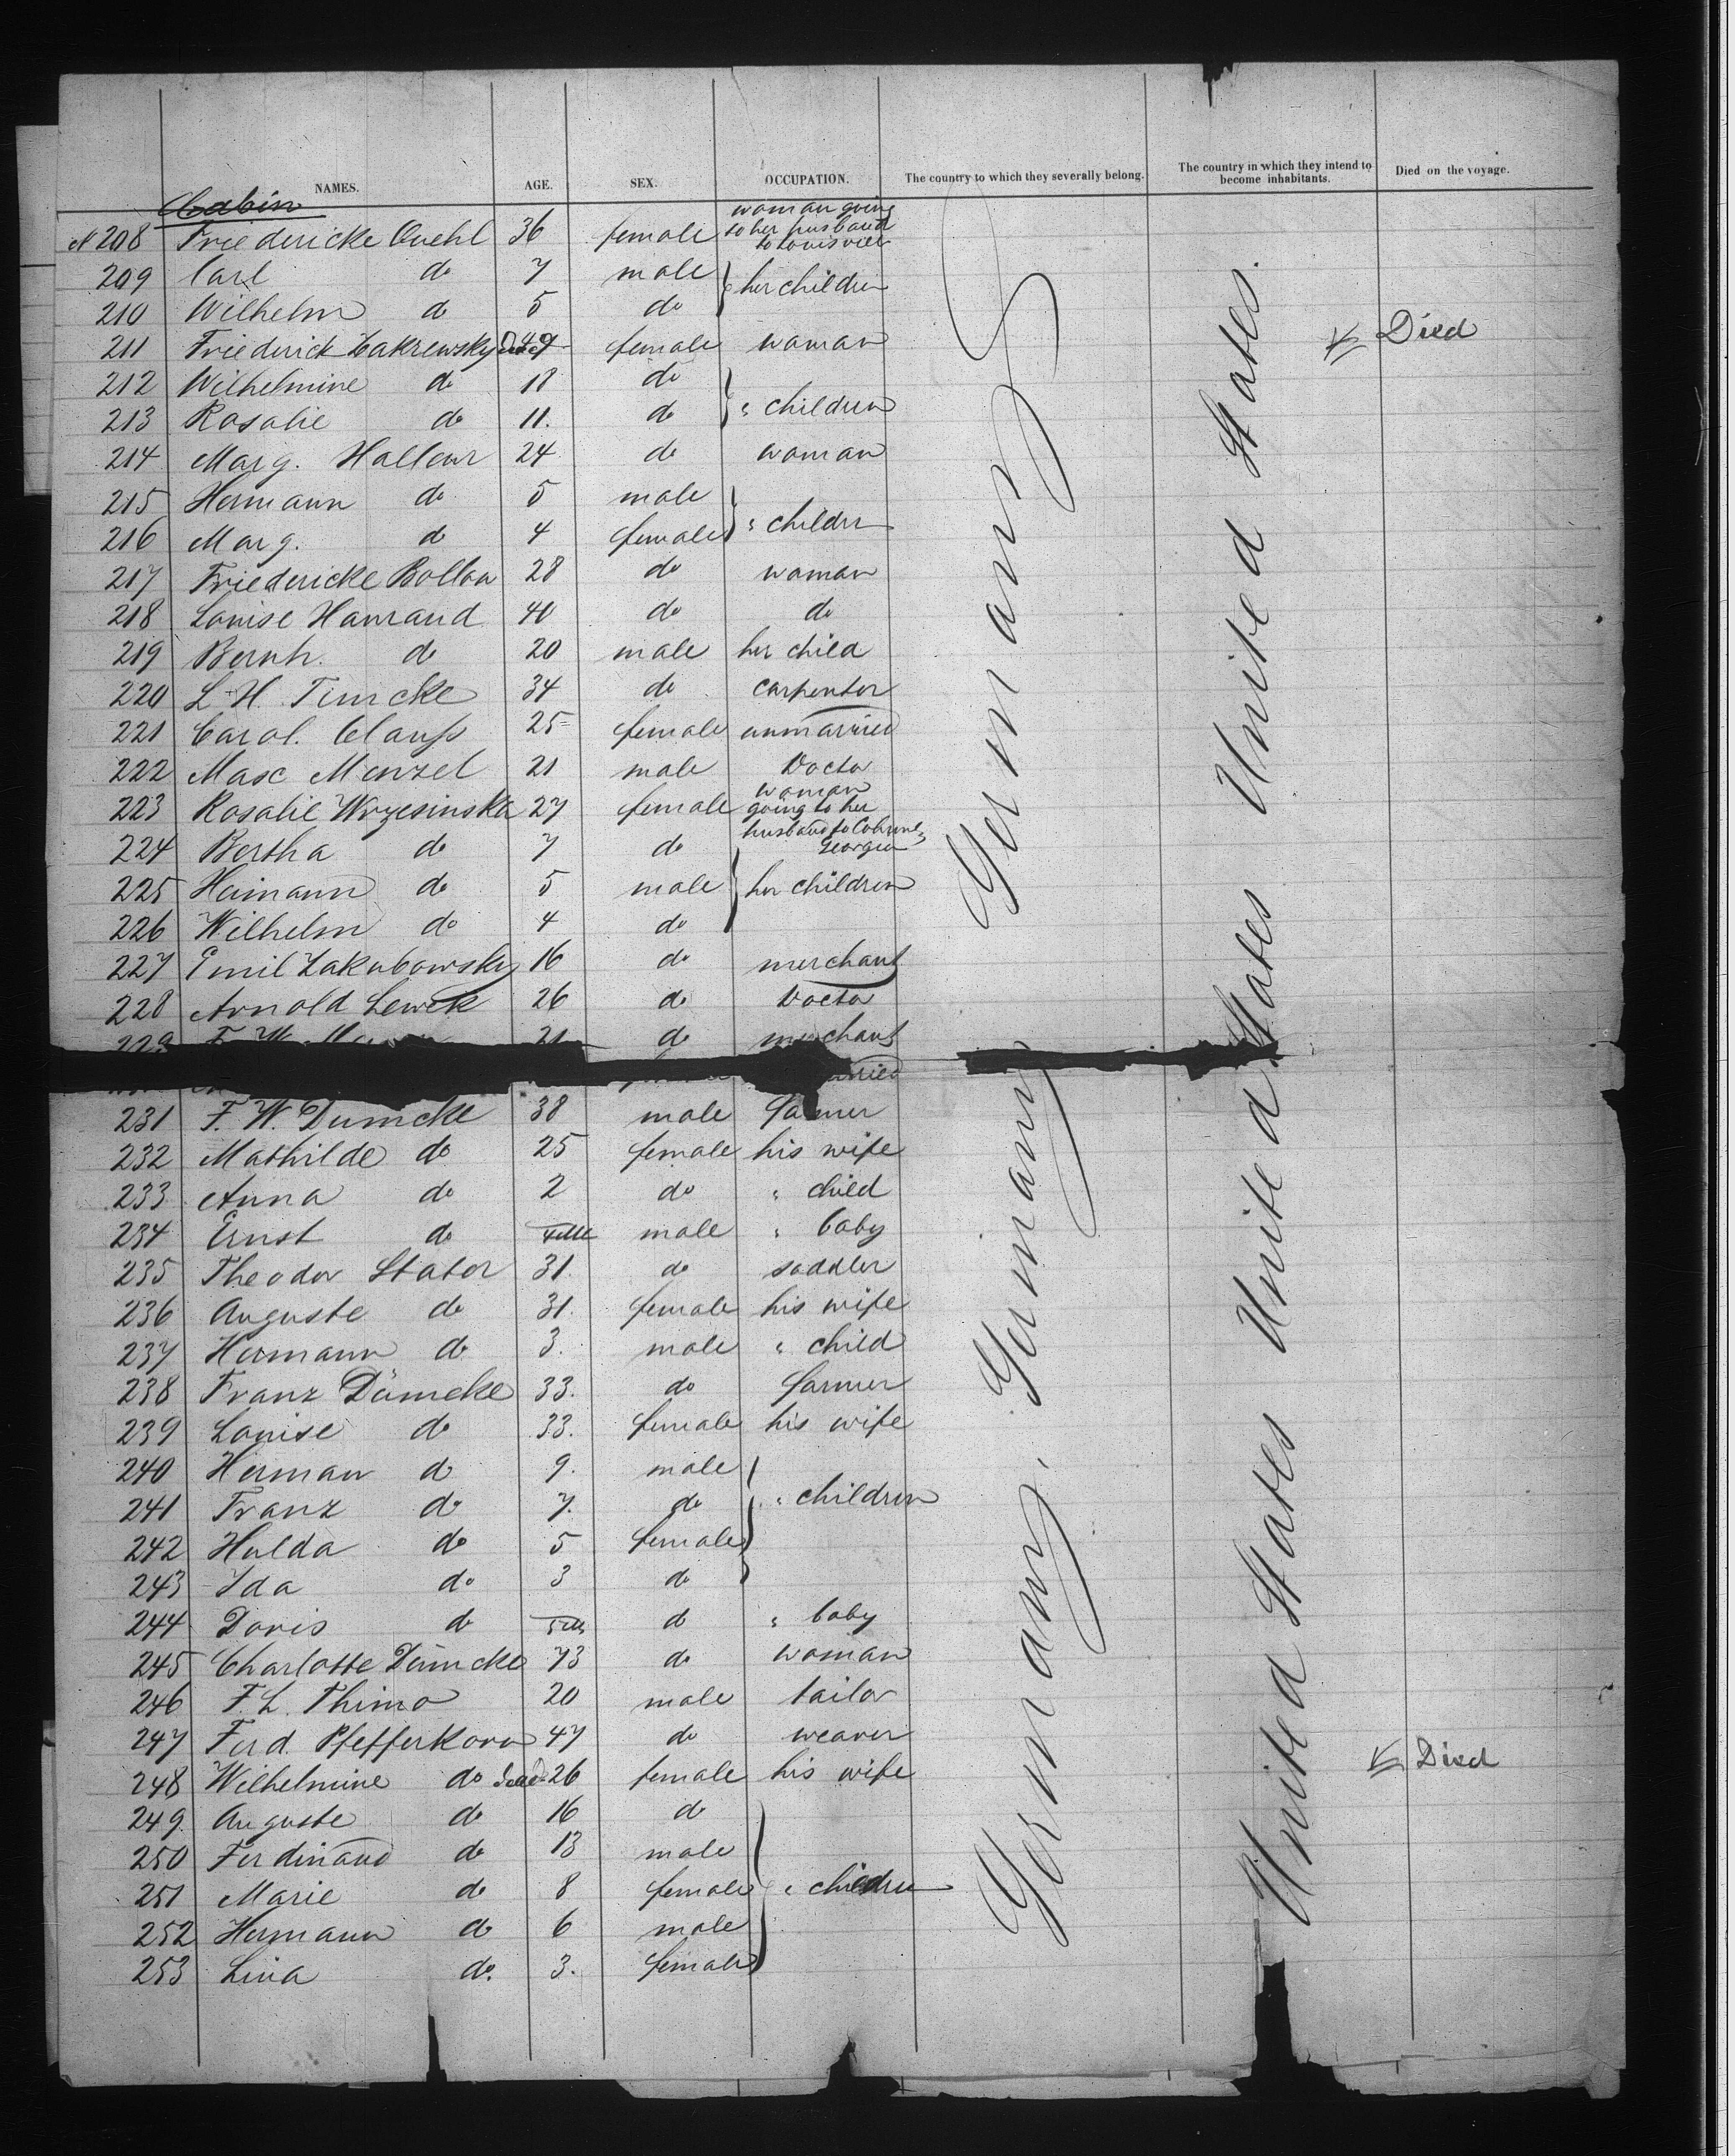 NAMES. AGE. SEX. OCCUPATION. The country to which they severally belong. The country in which they intend to become inhabitants. Died on the voyage.
Cabin
N 208 Friedericke Quehl 36 female woman going to her husband to Louisville
209 Carl do 7 male } her children
210 Wilhelm do 5 do
211 Friederick Zakrewsky 49 female woman Died
212 Wilhelmine do 18 do } " children
213 Rosalie do 11. do
214 Marg. Halleur 24 do woman
215 Hermann do 5 male } " children
216 Marg. do 4 female
217 Friedericke Bollow 28 do woman
218 Louise Hamrand 40 do do
219 Bernh. do 20 male her child
220 L. H. Timcke 34 do carpenter
221 Carol. Clauss 25 female unmarried
222 Max Menzel 21 male Doctor
223 Rosalie Wrzesinska 27 female woman going to her husband to Georgia
224 Bertha do 7 do
225 Heimann do 5 male } her children
226 Wilhelm do 4 do
227 Emil Zakubowsky 16 do merchant
228 Arnold Lewek 26 do Doctor
229 F. W. 21 do merchant
231 F. W. Dumcke 38 male farmer
232 Mathilde do 25 female his wife
233 Anna do 2 do " child
234 Ernst do male " baby
235 Theodor Stator 31. do saddler
236 Auguste do 31. female his wife
237 Hermann do 3. male " child
238 Franz Dümcke 33. do farmer
239 Louise do 33. female his wife
240 Herman do 9. male
241 Franz do 7. do } " children
242 Hulda do 5 female
243 Ida do 3 do
244 Doris do do " baby
245 Charlotte Dümcke 73 do woman
246 F. L. Thimo 20 male tailor
247 Ferd. Pfefferkorn 47 do weaver
248 Wilhelmine do dead 26 female his wife Died
249. Auguste do 16 do
250 Ferdinand do 13 male
251 Marie do 8 female } " children
252 Hermann do 6 male
253 Lina do. 3. female
Germany. Germany. Germany
United States United States United States.